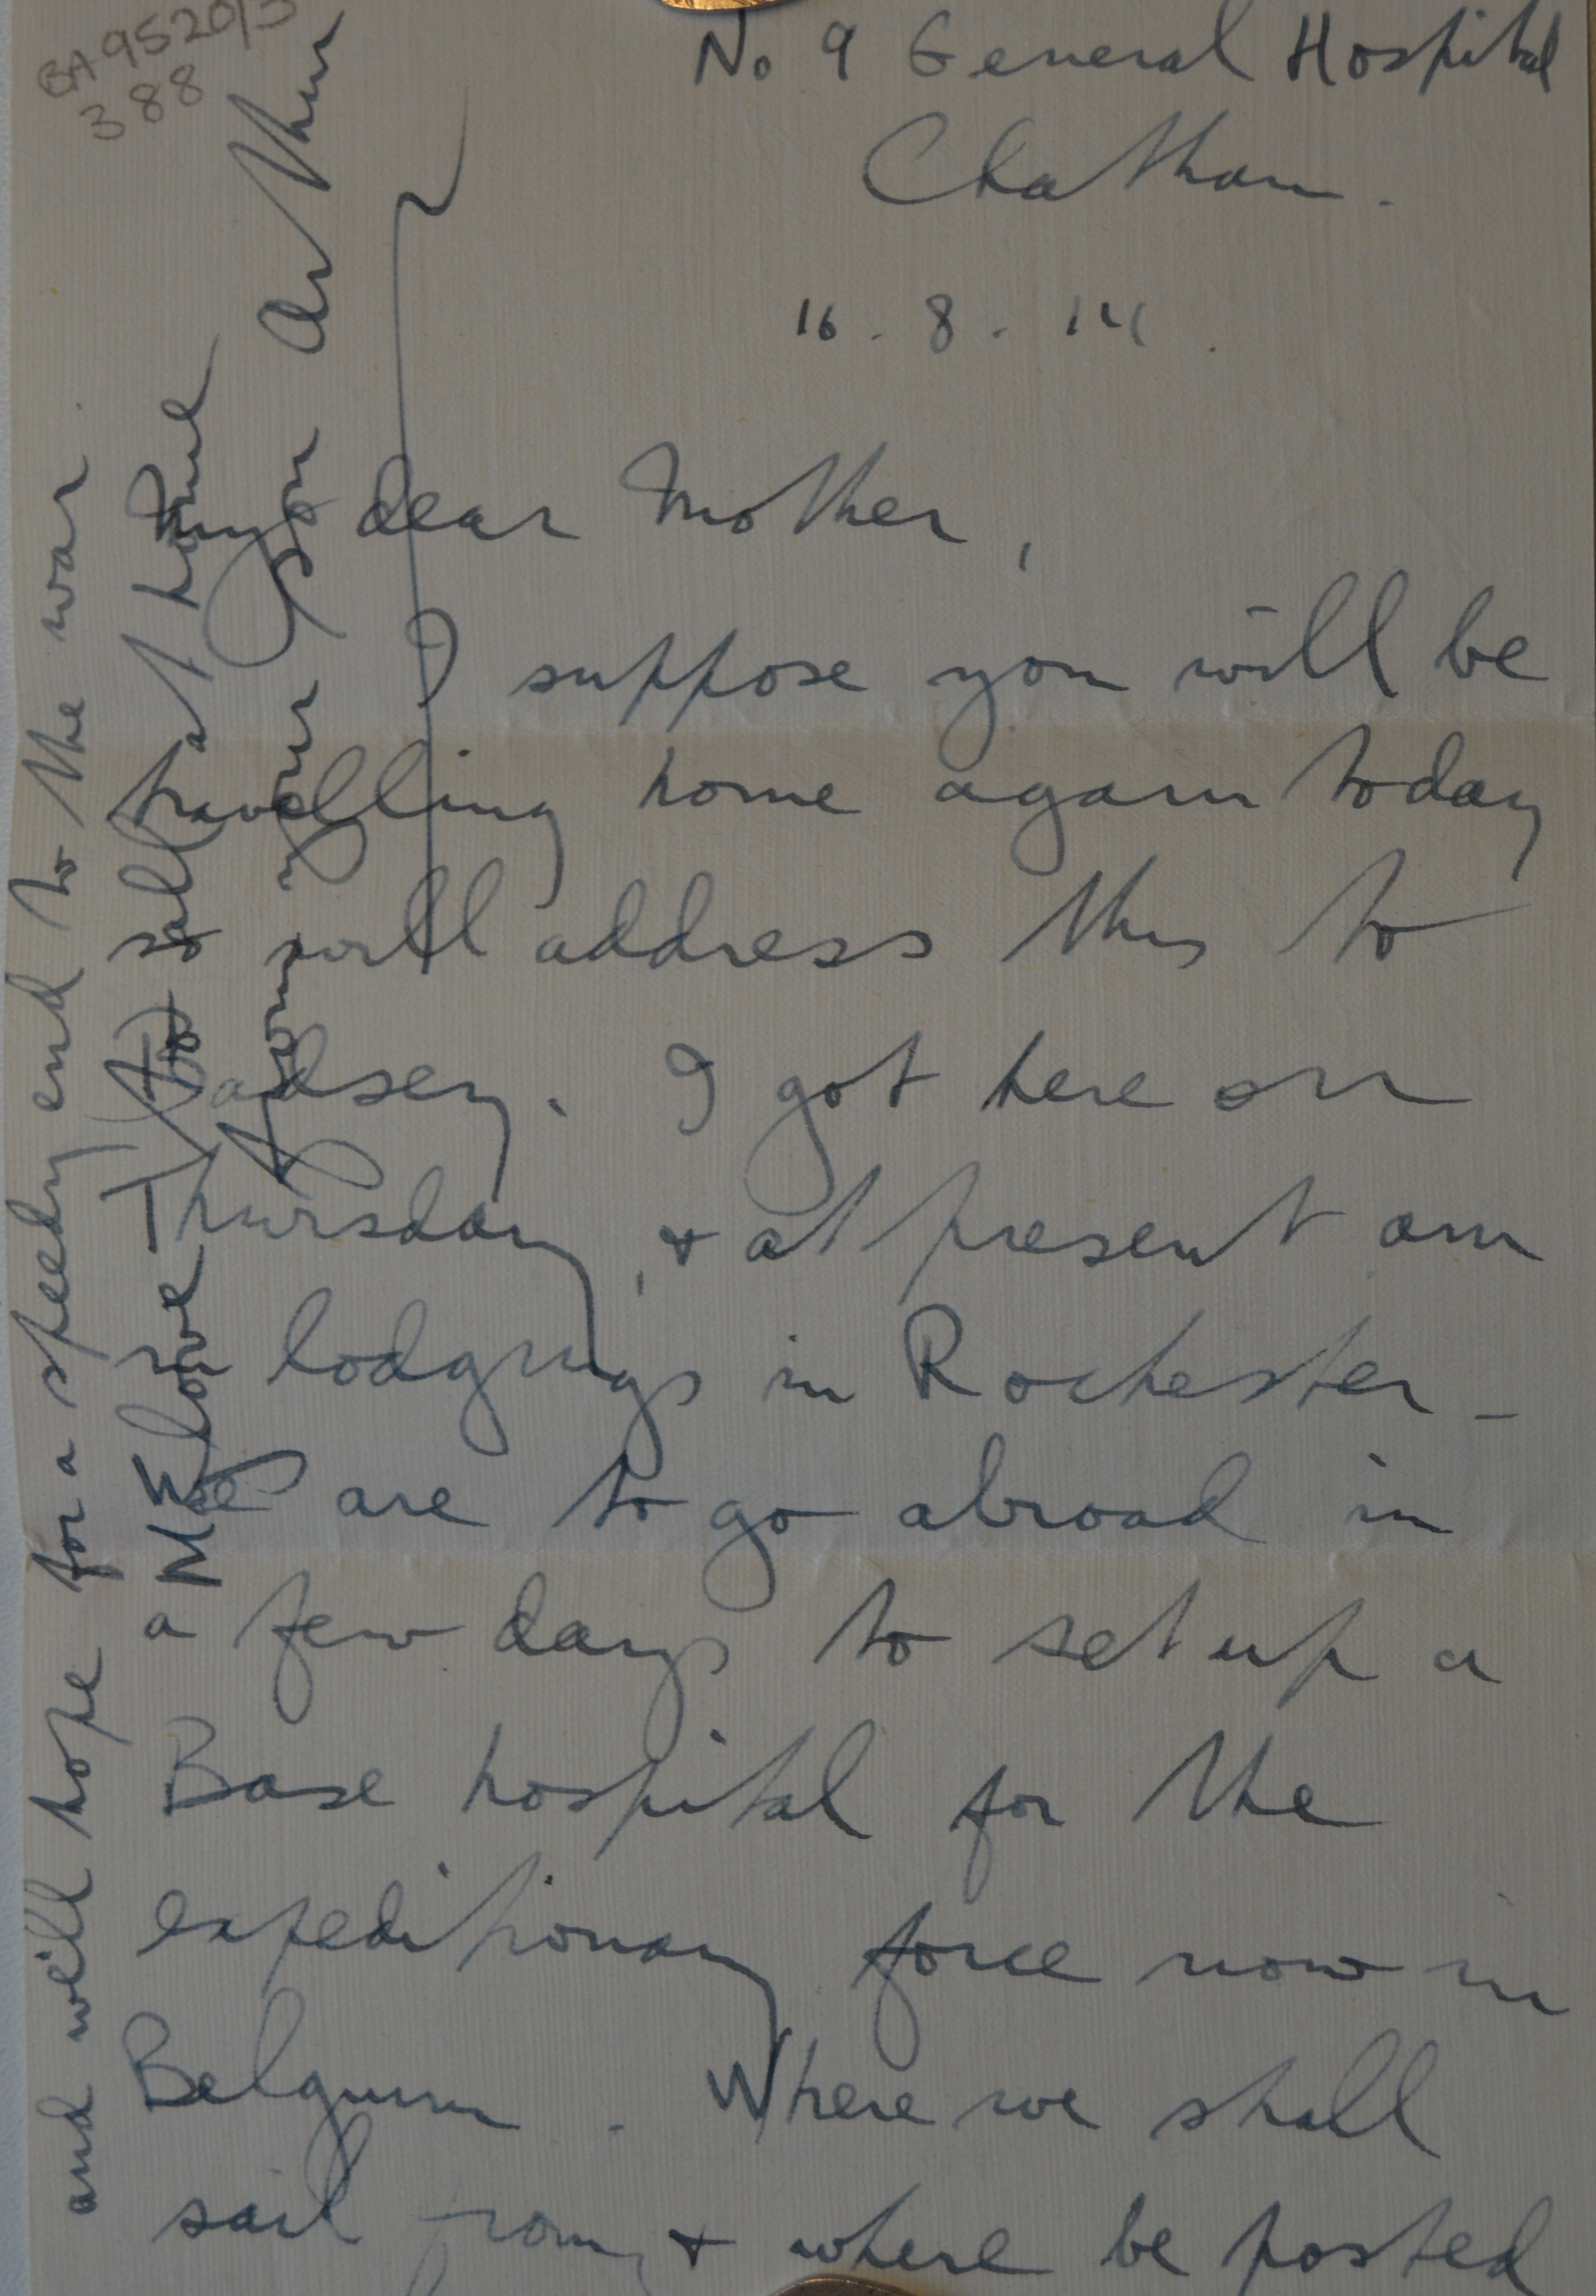 BA9520/3
388
No 9 General Hospital
Chatham.
16 . 8 . 14 .
My dear Mother,
I suppose you will be
travelling home again today
so will address this to
Badsey. I got here on
Thursday, & at present am
in lodgings in Rochester –
We are to go abroad in
a few days to set up a
Base hospital for the
expeditionary force now in
Belgium . Where we shall
sail from, & where be posted
and will hope for a speedy end to the war.
love to all at home
from your son Arthur